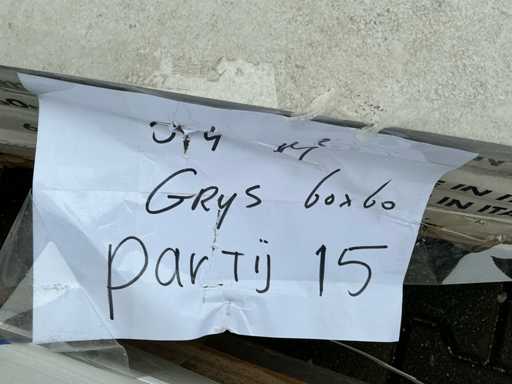 m²
GRYS 60x60
partij 15
E IN IT
IN ITA